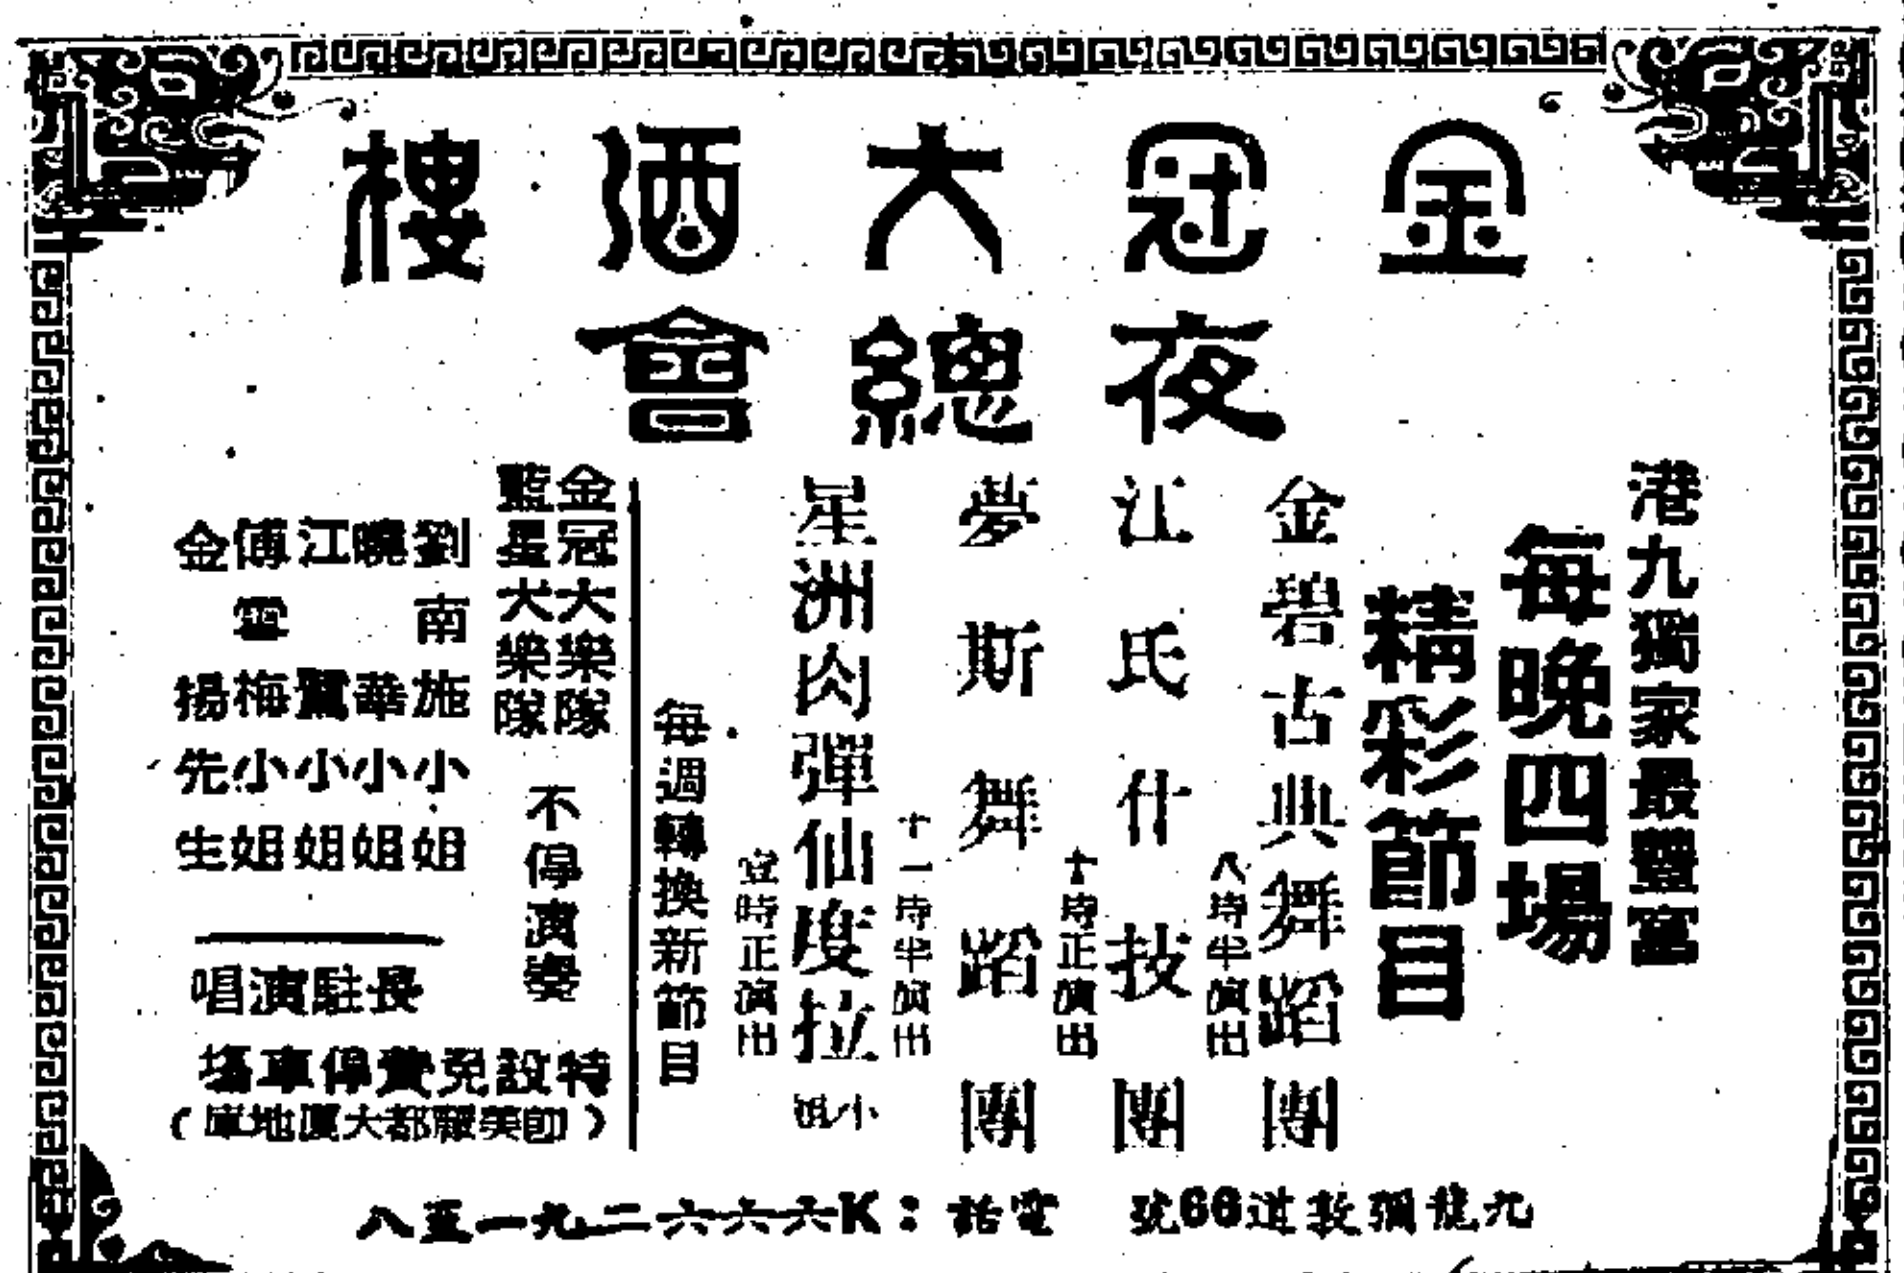 金冠大酒樓
夜總會
港九獨家最豐富
每晚四場
精彩節目
金碧古典舞蹈團
八時半演出
江氏什技團
十時正演出
夢斯舞蹈團
十一時半演出
星洲肉彈仙度拉小姐
壹時正演出
每週轉換新節目
金冠大樂隊
藍星大樂隊
不停演奏
劉南施小姐
曉華小姐
江鷺小姐
傅雪梅小姐
金揚先生
長駐演唱
特設免費停車場
(即美麗都大廈地庫)
九龍彌敦道66號 電話:K六六六二九一五八